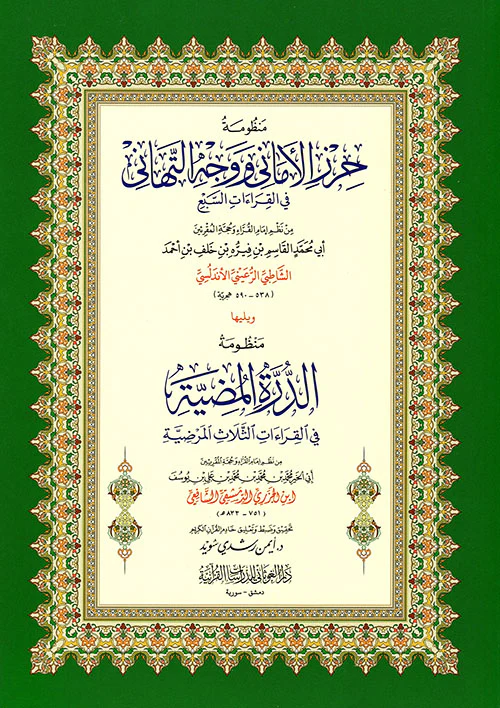 مَنْظُومَةُ
حِرْزِ الأَمَانِي وَوَجْهِ التَّهَانِي
فِي القِرَاءَاتِ السَّبْعِ
مِنْ نَظْمِ إِمَامِ القُرَّاءِ وَحُجَّةِ المُقْرِئِينَ
أَبِي مُحَمَّدٍ القَاسِمِ بْنِ فِيرُّهْ بْنِ خَلَفِ بْنِ أَحْمَدَ
الشَّاطِبِيِّ الرُّعَيْنِيِّ الأَنْدَلُسِيِّ
(٥٣٨ - ٥٩٠ هجرية)
ويليها
مَنْظُومَةُ
الدُّرَّةِ المُضِيَّةِ
فِي القِرَاءَاتِ الثَّلَاثِ المَرْضِيَّةِ
مِنْ نَظْمِ إِمَامِ القُرَّاءِ وَحُجَّةِ المُقْرِئِينَ
أَبِي الخَيْرِ مُحَمَّدِ بْنِ مُحَمَّدِ بْنِ مُحَمَّدِ بْنِ عَلِيِّ بْنِ يُوسُفَ
ابْنِ الجَزَرِيِّ الدِّمَشْقِيِّ الشَّافِعِيِّ
(٧٥١ - ٨٣٣ هـ)
تحقيق وضبط وتعليق خادم القرآن الكريم
د. أيمن رشدي سويد
دار الغوثاني للدراسات القرآنية
دمشق - سورية